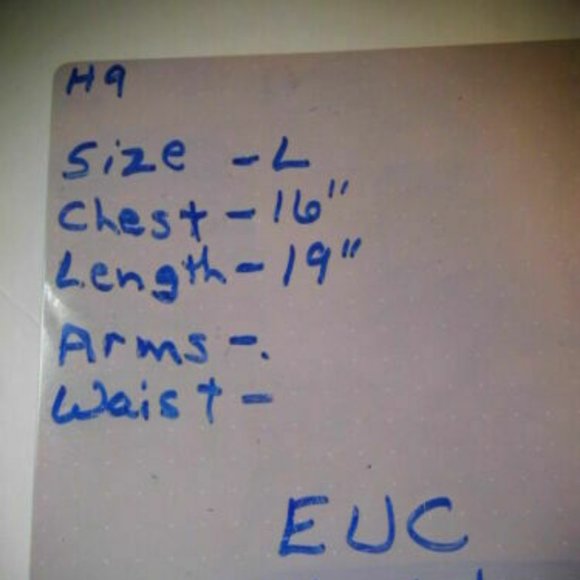 H9
Size - L
Chest - 16"
Length - 19"
Arms - .
Waist -
EUC